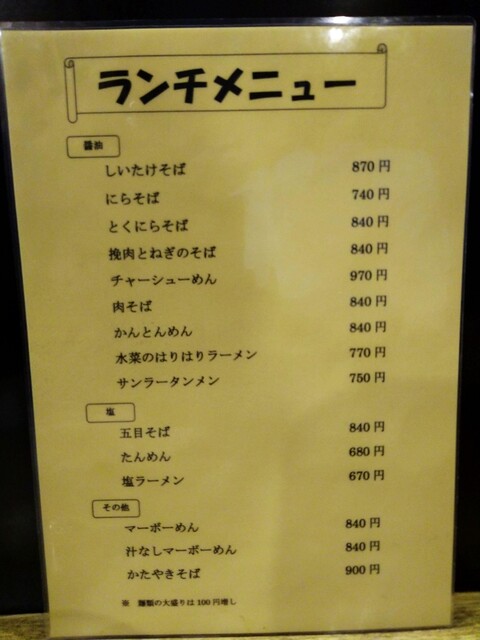 ランチメニュー
醤油
しいたけそば 870円
にらそば 740円
とくにらそば 840円
挽肉とねぎのそば 840円
チャーシューめん 970円
肉そば 840円
かんとんめん 840円
水菜のはりはりラーメン 770円
サンラータンメン 750円
塩
五目そば 840円
たんめん 680円
塩ラーメン 670円
その他
マーボーめん 840円
汁なしマーボーめん 840円
かたやきそば 900円
※ 麺類の大盛りは100円増し